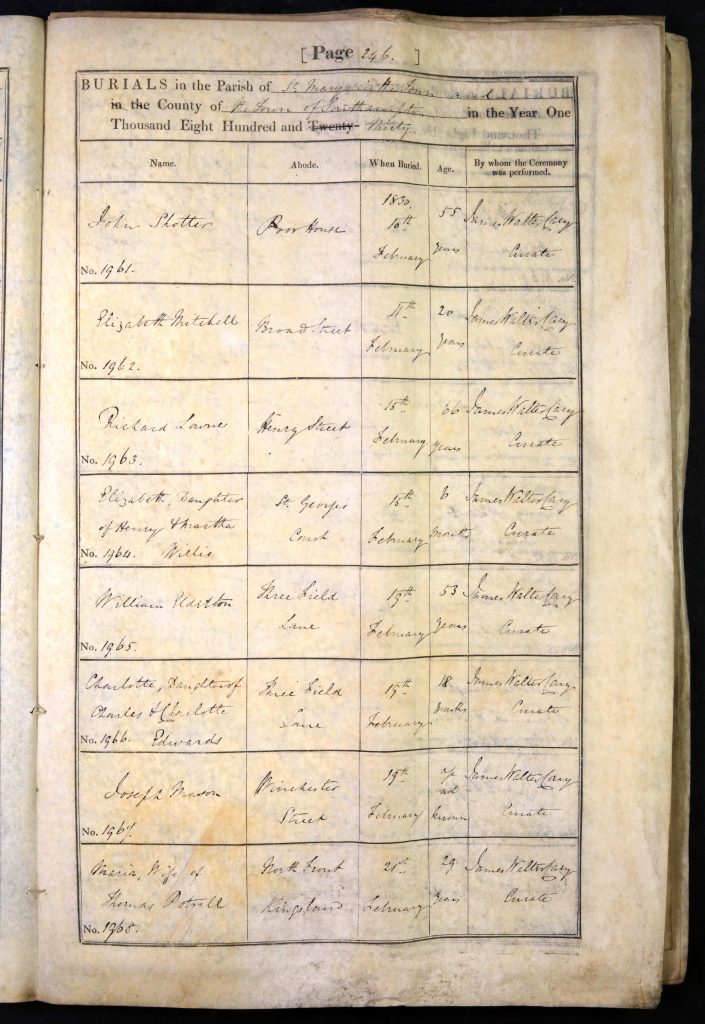 [ Page 246. ]
BURIALS in the Parish of St. Mary in the Town and
in the County of the Town of Southampton in the Year One
Thousand Eight Hundred and Twenty- Thirty
Name. Abode. When Buried. Age. By whom the Ceremony was performed.
1830.
John Shotter Poor House 10th 55 James Walter Cary
February years Curate
No. 1961.
Elizabeth Mitchell Broad Street 11th 20 James Walter Cary
February years Curate
No. 1962.
Richard Henry Street 15th 66 James Walter Cary
February years Curate
No. 1963.
Elizabeth, Daughter St. Georges 15th 6 James Walter Cary
of Henry & Martha Court February months Curate
No. 1964. Willis
William Three Field 53 James Walter Cary
Lane February years Curate
No. 1965.
Charlotte, Daughter of Three Field 18 James Walter Cary
Charles & Charlotte Lane February months Curate
No. 1966. Edwards
Joseph Mason Winchester 19th James Walter Cary
Street February not known Curate
No. 1967.
Maria, Wife of North Front 21st 29 James Walter Cary
Thomas Kingsland February years Curate
No. 1968.